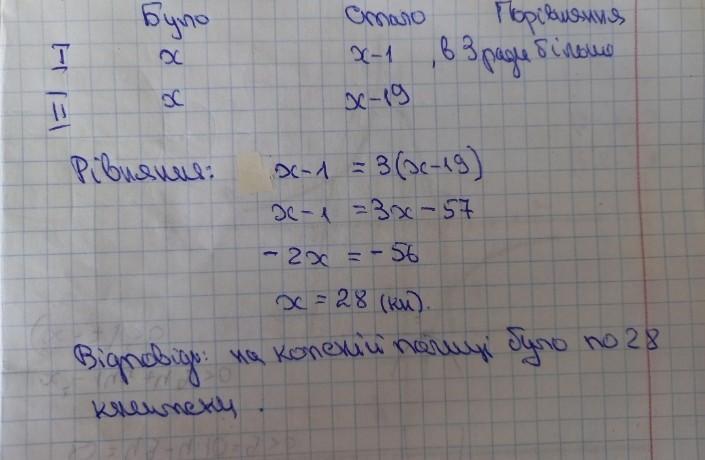 Було Стало Порівняння
I x x-1 , в 3 рази більше
II x x-19
Рівняння: x-1 = 3(x-19)
x-1 = 3x-57
-2x = -56
x = 28 (кн).
Відповідь: на кожній полиці було по 28
книжки.